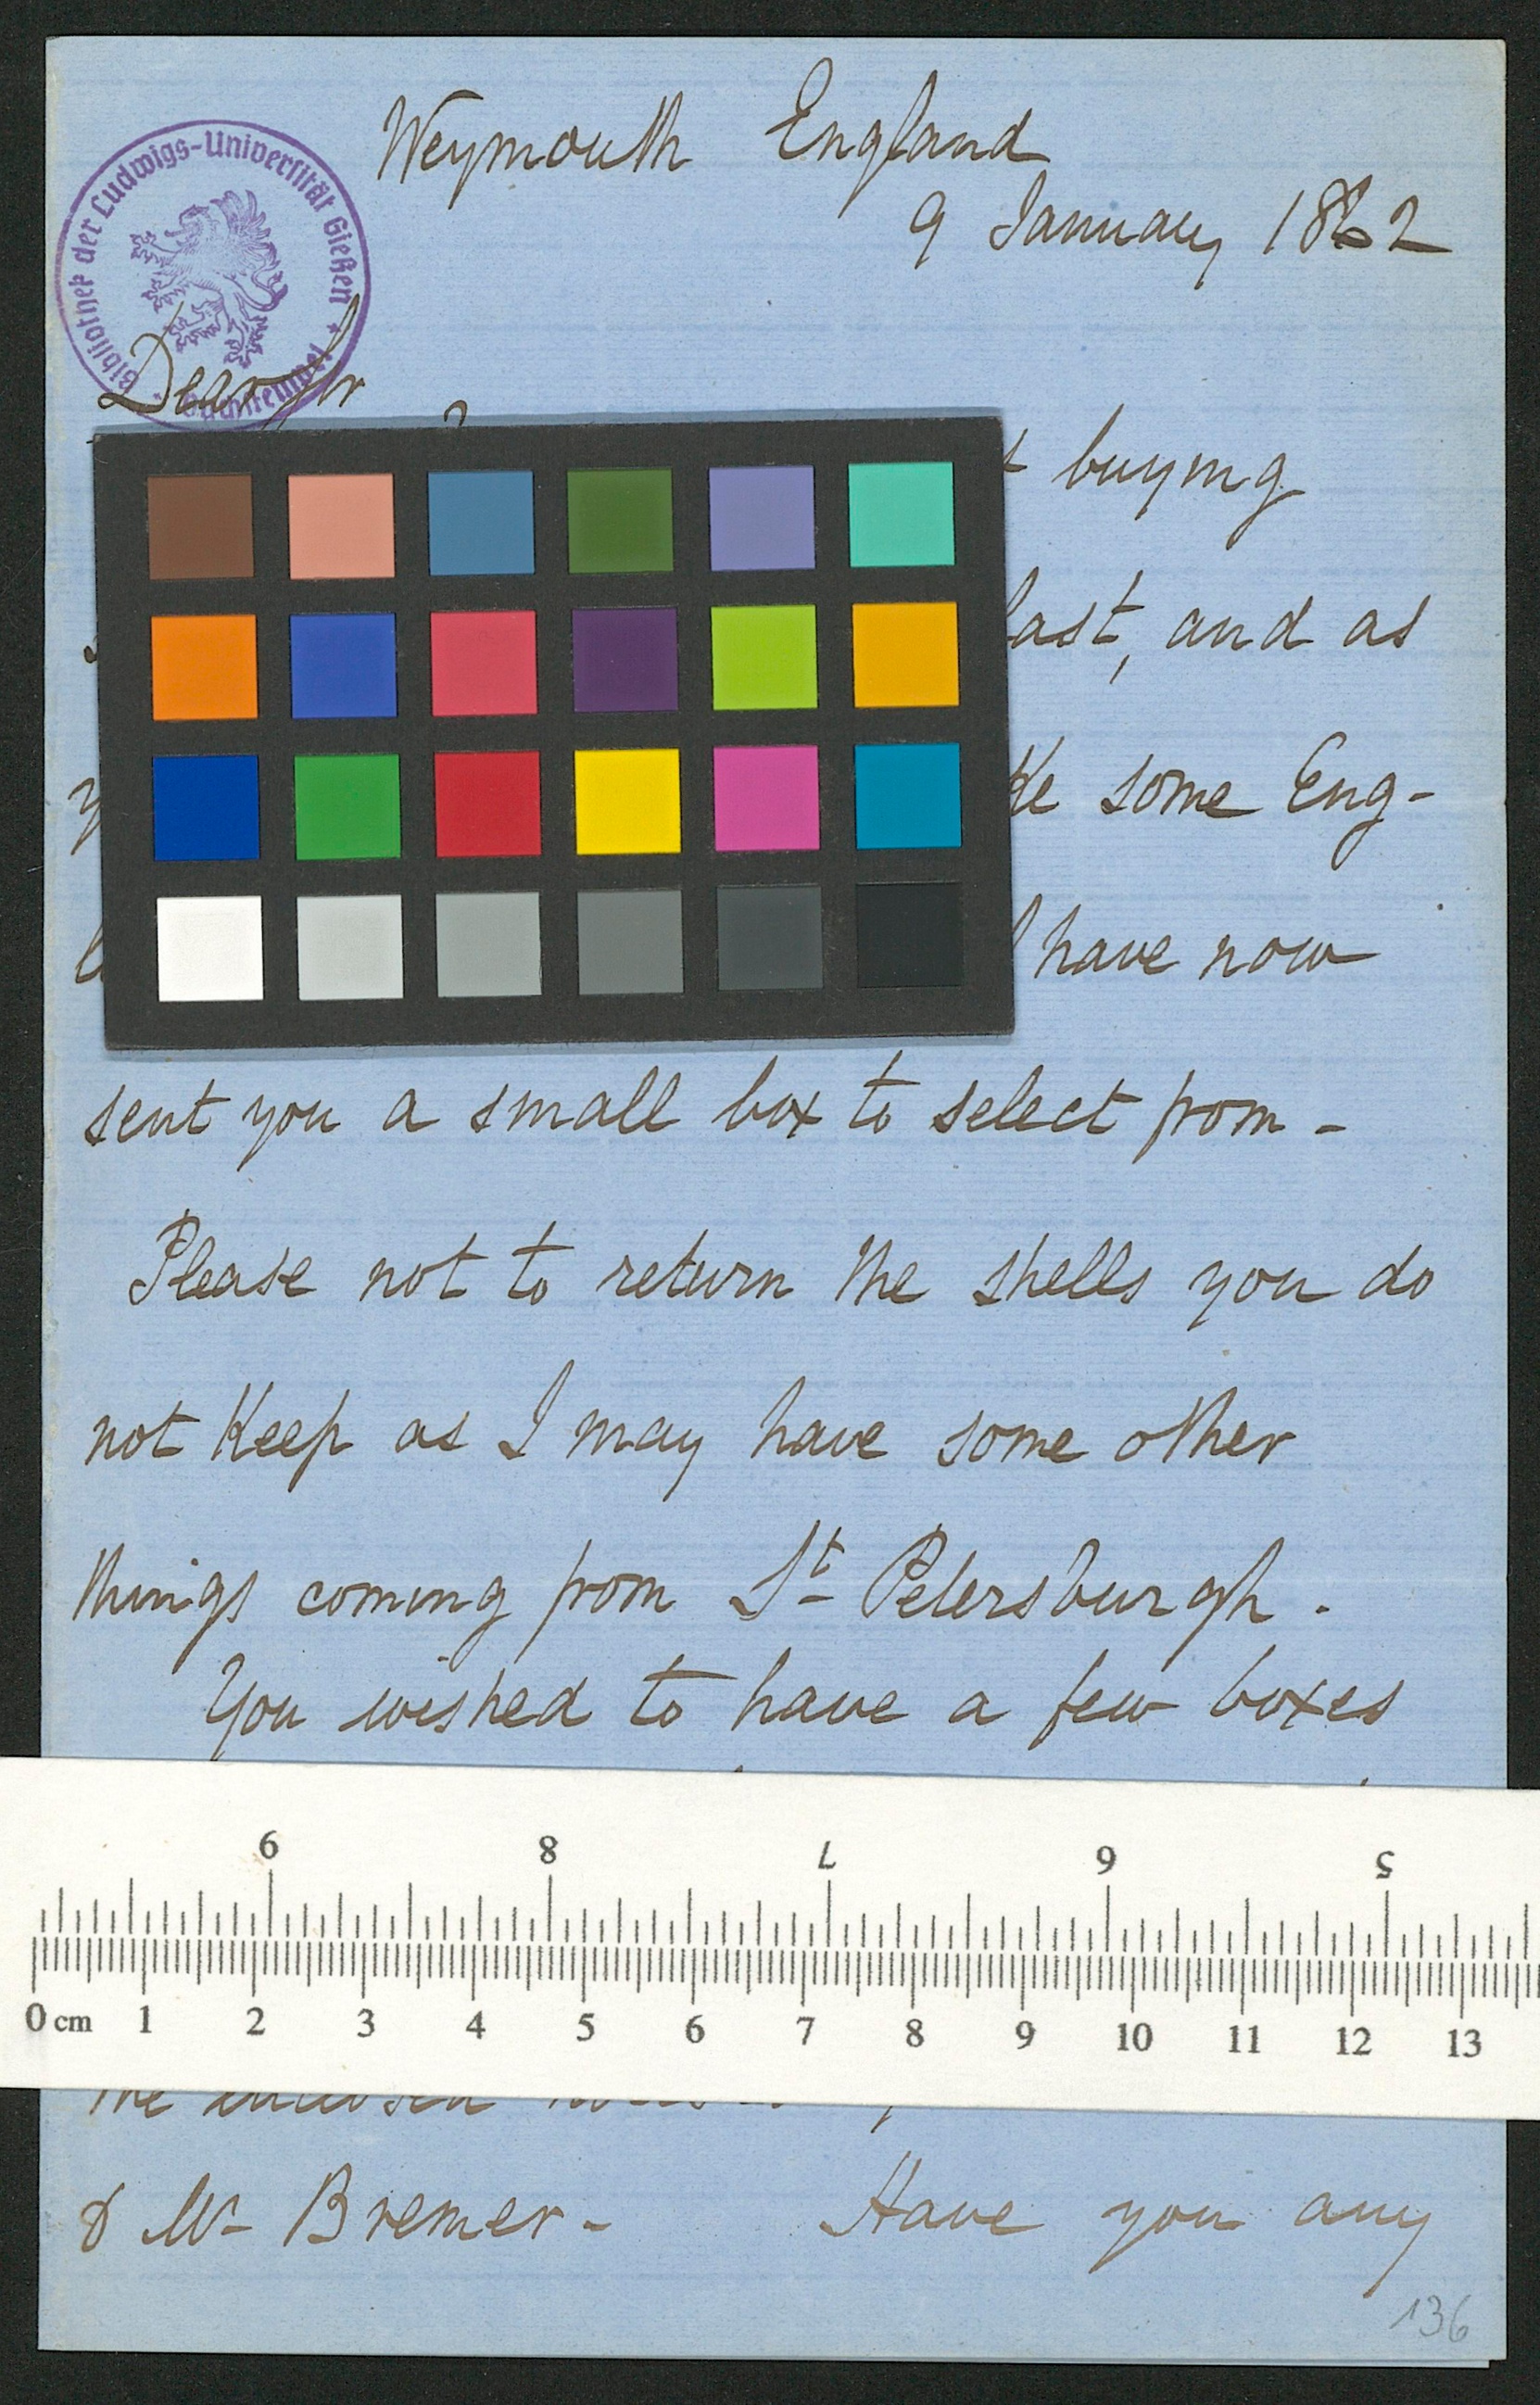 Weymouth England
9 January 1862
Bibliothek der Ludwigs-Universität Gießen
Dear Sir
buying
last, and as
some Eng-
I have now
sent you a small box to select from -
Please not to return the shells you do
not Keep as I may have some other
things coming from St Petersburgh.
You wished to have a few boxes
9 8 7 6 5
0 cm 1 2 3 4 5 6 7 8 9 10 11 12 13
the enclosed
& Mr Bremer - Have you any
136